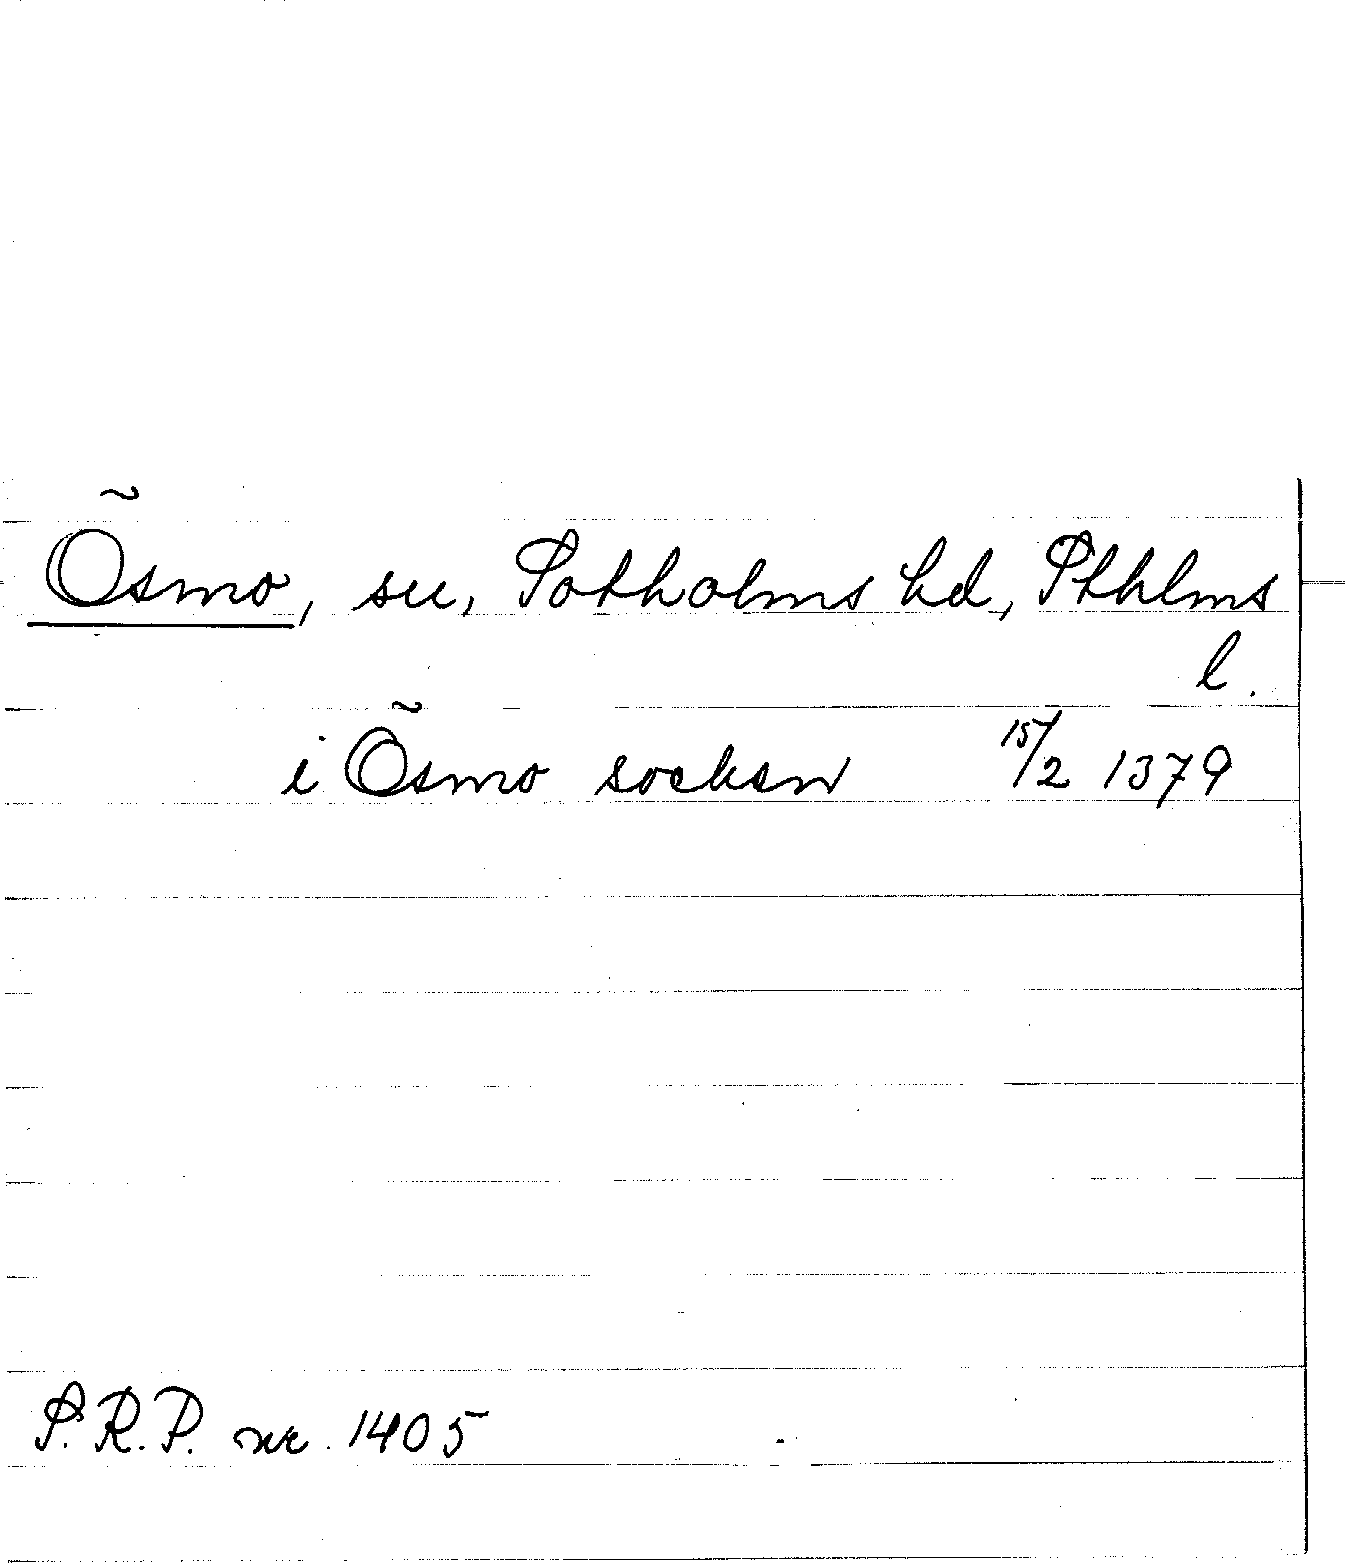 Ösmo, sn, Sotholms hd, Sthlms
l.
i Ösmo socken 15/2 1379
S.R.P. nr. 1405